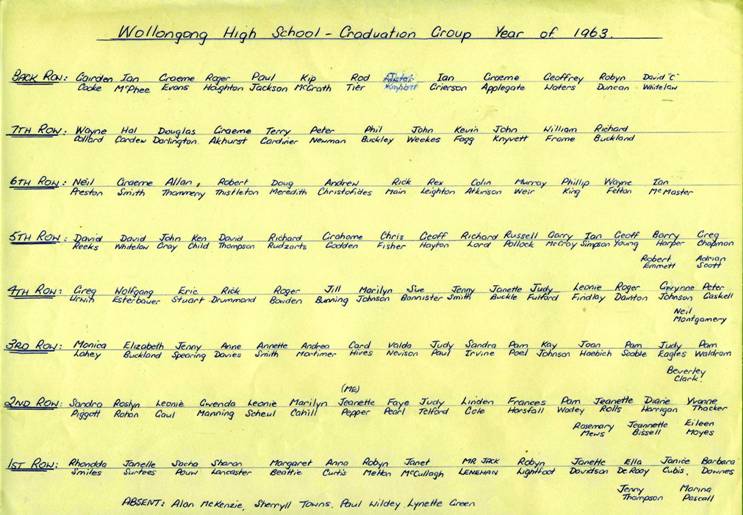 Wollongong High School - Graduation Group Year of 1963.
BACK ROW: Gairden Ian Graeme Roger Paul Kip Rod Ian Graeme Geoffrey Robyn David "C"
Cooke McPhee Evans Houghton Jackson McGrath Tier Grierson Applegate Waters Duncan Whitelaw
7TH ROW: Wayne Hal Douglas Graeme Terry Peter Phil John Kevin John William Richard
Collard Cardew Darlington Akhurst Gardiner Newman Buckley Weekes Fogg Knyvett Frame Buckland
6TH ROW: Neil Graeme Allan, Robert Doug Andrew Rick Rex Colin Murray Phillip Wayne Ian
Preston Smith Thommeny Thistleton Meredith Christofides Main Leighton Atkinson Weir King Felton McMaster
5TH ROW: David David John Ken David Richard Grahame Chris Geoff Richard Russell Garry Ian Geoff Barry Greg
Reeks Whitelaw Gray Child Thompson Rudzarts Godden Fisher Hayton Lord Pollock McCroy Simpson Young Harper Chapman
Robert Adrian
Emmett Scott
4TH ROW: Greg Wolfgang Eric Rick Roger Jill Marilyn Sue Jenny Janette Judy Leonie Roger Gwynne Peter
Urwin Esterbauer Stuart Drummond Bowden Bunning Johnson Bannister Smith Buckle Fulford Findlay Daunton Johnson Gaskell
Neil
Montgomery
3RD ROW: Monica Elizabeth Jenny Anne Annette Andrea Carol Valda Judy Sandra Pam Kay Joan Pam Judy Pam
Lahey Buckland Spearing Davies Smith Mortimer Hires Nevison Paul Irvine Poel Johnson Haebich Scoble Eagles Waldram
Beverley
Clark.
(ME)
2ND ROW: Sandra Roslyn Leonie Gwenda Leonie Marilyn Jeanette Faye Judy Linden Frances Pam Jeanette Diane Yvonne
Piggott Rohan Gaul Manning Scheul Cahill Pepper Pearl Telford Cole Horsfall Waxley Rolls Harrigan Thacker
Rosemary Jeannette Eileen
Mews Bissell Moyes
1ST ROW: Rhondda Janelle Sacha Sharon Margaret Anna Robyn Janet MR JACK Robyn Janette Ella Janice Barbara
Smiles Surtees Pouw Lancaster Beattie Curtis Melton McCullagh LENEHAN Lightfoot Davidson De Rooy Cubis. Downes
Jenny Marina
Thompson Pascall
ABSENT: Alan McKenzie, Sherryll Towns, Paul Wildey, Lynette Green